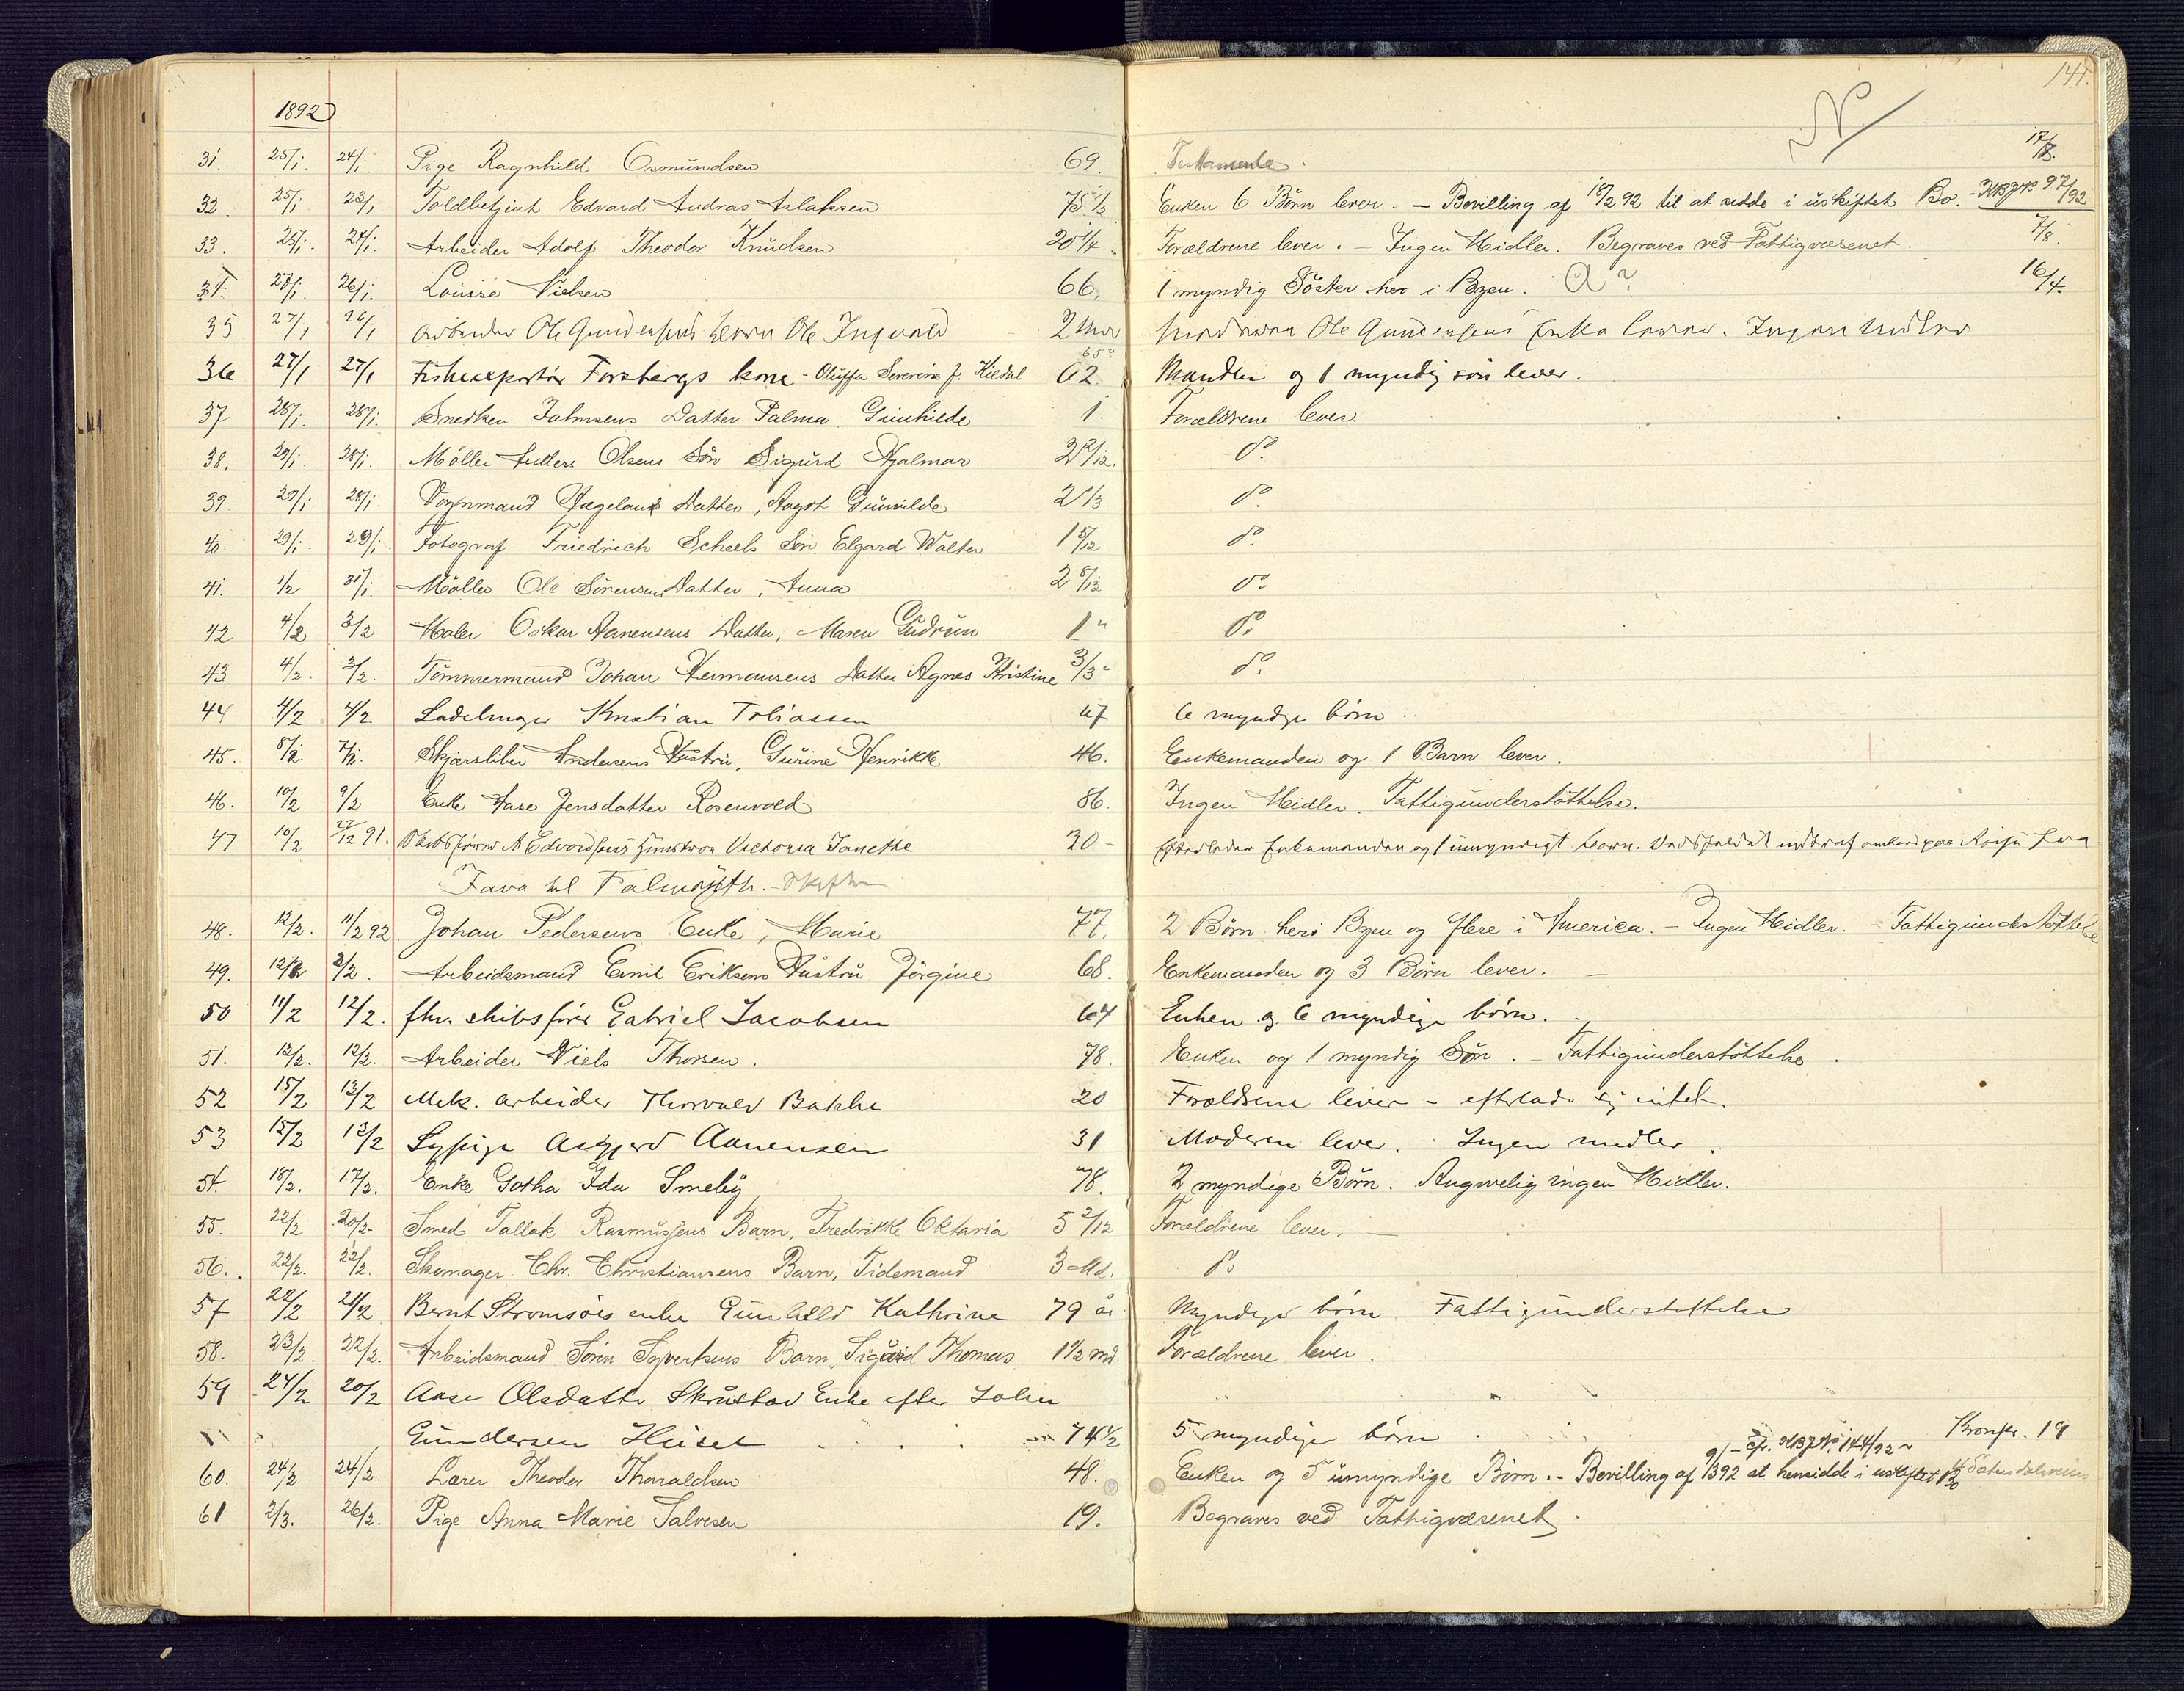 141.
1892
31. 25/1. 24/1. Pige Ragnhild Osmundsen 69. Testamente. 17/8.
32. 25/1 23/1. Toldbetjent Edvard Andras Aslaksen 75 1/2 Enken 6 Börn lever. – Bevilling af 18/2 92 til at sidde i uskiftet Bo. - 97/92
33. 25/1. 24/1. Arbeider Adolf Theodor Knudsen 20 1/4. Forældrene lever. – Ingen Midler. Begraves ved Fattigvæsenet. 7/8.
34. 27/1. 26/1. Louise Nielsen 66. 1 myndig Söster her i Byen. a? 16/4.
35 27/1 26/1 Arbeider Ole Gundersens barn Ole Ingvald 2 Ole Gundersens Enke lever. Ingen midler
65?
36 27/1 27/1 Fiskeexportör Forsbergs kone - Oluffa Severine f. Kiedal 62. Manden og 1 myndig sön lever.
37 28/1. 28/1. Snedker Datter Palma Gunhilde 1. Forældrene lever.
38. 29/1. 28/1. Möller Olsens Sön Sigurd Hjalmar 2 2/12. do.
39 29/1. 28/1. Vognmand Hægelands Datter, Aagot Gunvilde 2 1/3 do.
40. 29/1. 29/1. Fotograf Friedrich Scheels Sön Elgard Walter 1 5/12 do.
41. 1/2 31/1. Möller Ole Sörensens Datter, Anna 2 8/12 do.
42 4/2 3/2 Maler Oskar Aanensens Datter, Maren Gudrun 1" do.
43 4/2. 3/2. Tömmermand Johan Hermansens Datter Agnes Kristine 3/3" do.
44 4/2 4/2 Kristian Tobiassen 67 6 myndge börn..
45. 8/2. 7/2. Skjærsliber Andersens Hustru, Gurine Henrikke 46. Enkemanden og 1 Barn lever.
46. 10/2 9/2 Enke Aase Jensdatter Rosenvold 86. Ingen Midler. Fattigunderstöttelse.
47 10/2 27/12 91. Skibsförer A Edvardsens Hustru Victoria Janette 30 - Efterlader Enkemanden og 1 umyndigt barn. Dödsfaldet indtraf ombord paa Reise fra
Java til Falmouth. - Skifte
48. 12/2. 11/2 92 Johan Pedersens Enke, Marie 77. 2 Börn her i Byen og flere i America. – Ingen Midler. – Fattigunderstöttelse
49. 12/2 2/2. Arbeidsmand Emil Eriksens Hustru Jörgine 68. Enkemanden og 3 Börn lever.
50 11/2 12/2. fhv. skibsförer Gabriel Jacobsen 64 Enken og 6 myndige börn.
51. 13/2. 12/2. Arbeider Niels Thorsen. 78. Enken og 1 myndig Sön. – Fattigunderstöttelse.
52 15/2 13/2 Mek. arbeider Thorvald Bakke 20 Forældrene lever – efterlader sig intet.
53 15/2 13/2 Sypige Asgjerd Aanensen 31 Moderen lever. Ingen midler.
54. 18/2. 17/2. Enke Gotha Ida Smeby 78. 2 myndige Börn. Angivelig ingen Midler.
55. 22/2 20/2 Smed Tallak Rasmussens Barn, Fredrikke Oktavia 5 2/12 Forældrene lever.
56. 22/2. 22/2. Skomager Chr. Christiansens Barn, Tidemand 3 Md. do
57 22/2 21/2 Bernt Strömsöes enke Gunhild Kathrine 79 år Myndige börn Fattigunderstöttelse
58. 23/2. 22/2. Arbeidsmand Sören Syvertsens Barn, Sigurd Thomas 1 1/2 md. Forældrene lever.
59 24/2 20/2 Aase Olsdatter Skrustad Enke efter John
Gundersen Huset 74 1/2 5 myndige börn
Kronpr. 19
cfr. 144/92
60. 24/2 24/2. Lærer Theodor Thoraldsen 48. Enken og 5 umyndige Börn. – Bevilling af 9/3 92 at hensidde i uskiftet
61 2/3. 26/2. Pige Anna Marie Salvesen 19. Begraves ved Fattigvæsenet.